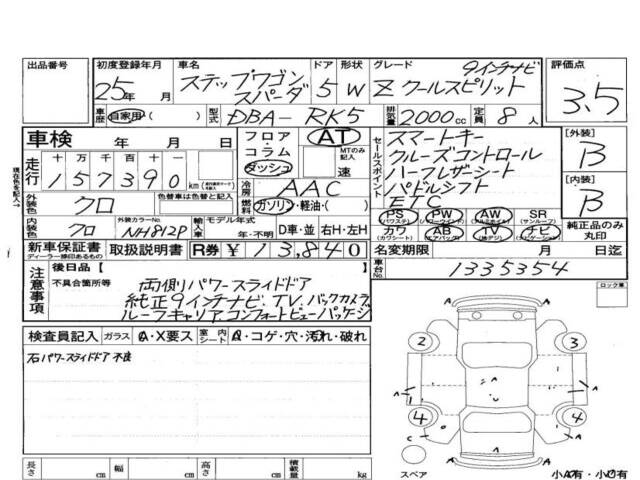 出品番号
初度登録年月
25年 月
車名
ステップワゴン
スパーダ
ドア
5
形状
W
グレード
9インチナビ
Z クールスピリット
評価点
3.5
車歴
自家用・( )
型式
DBA- RK5
排気量
2000cc
定員
8人
車検 年 月 日
フロア・コラム
ダッシュ
AT
MTのみ記入
速
セールスポイント
スマートキー
クルーズコントロール
ハーフレザーシート
パドルシフト
ETC
[外装]
B
[内装]
B
走行
十 万 千 百 十
157390km
冷房
AAC
外装色
クロ
色替車は色替と記入
燃料
ガソリン・軽油・( )
PS
(パワステ)
PW
(パワーウインド)
AW
(アルミホイル)
SR
(サンルーフ)
カワ
(カワシート)
AB
(エアバック)
TV
(地デジ)
ナビ
純正品のみ丸印
内装色
クロ
外装カラーNo.
NH812P
輸入車
モデル年式
年・不明
D車・並
右H・左H
新車保証書
ディーラー捺印あるもの
取扱説明書
R券 ¥13,840
名変期限 月 日迄
車台No.
1335354
注意事項
後日品【
不具合箇所等
両側パワースライドドア
純正9インチナビ.TV.バックカメラ
ルーフキャリア.コンフォートビューパッケージ
ロック車
検査員記入
ガラス
A・X要ス
室内シート
A・コゲ・穴・汚れ・破れ
右パワースライドドア不良
2
3
4
4
A
A
A
A
A
A
A
C
スペア
小A有・小U有
長さ cm
幅 cm
高さ cm
積載量 kg
現在色を記入→